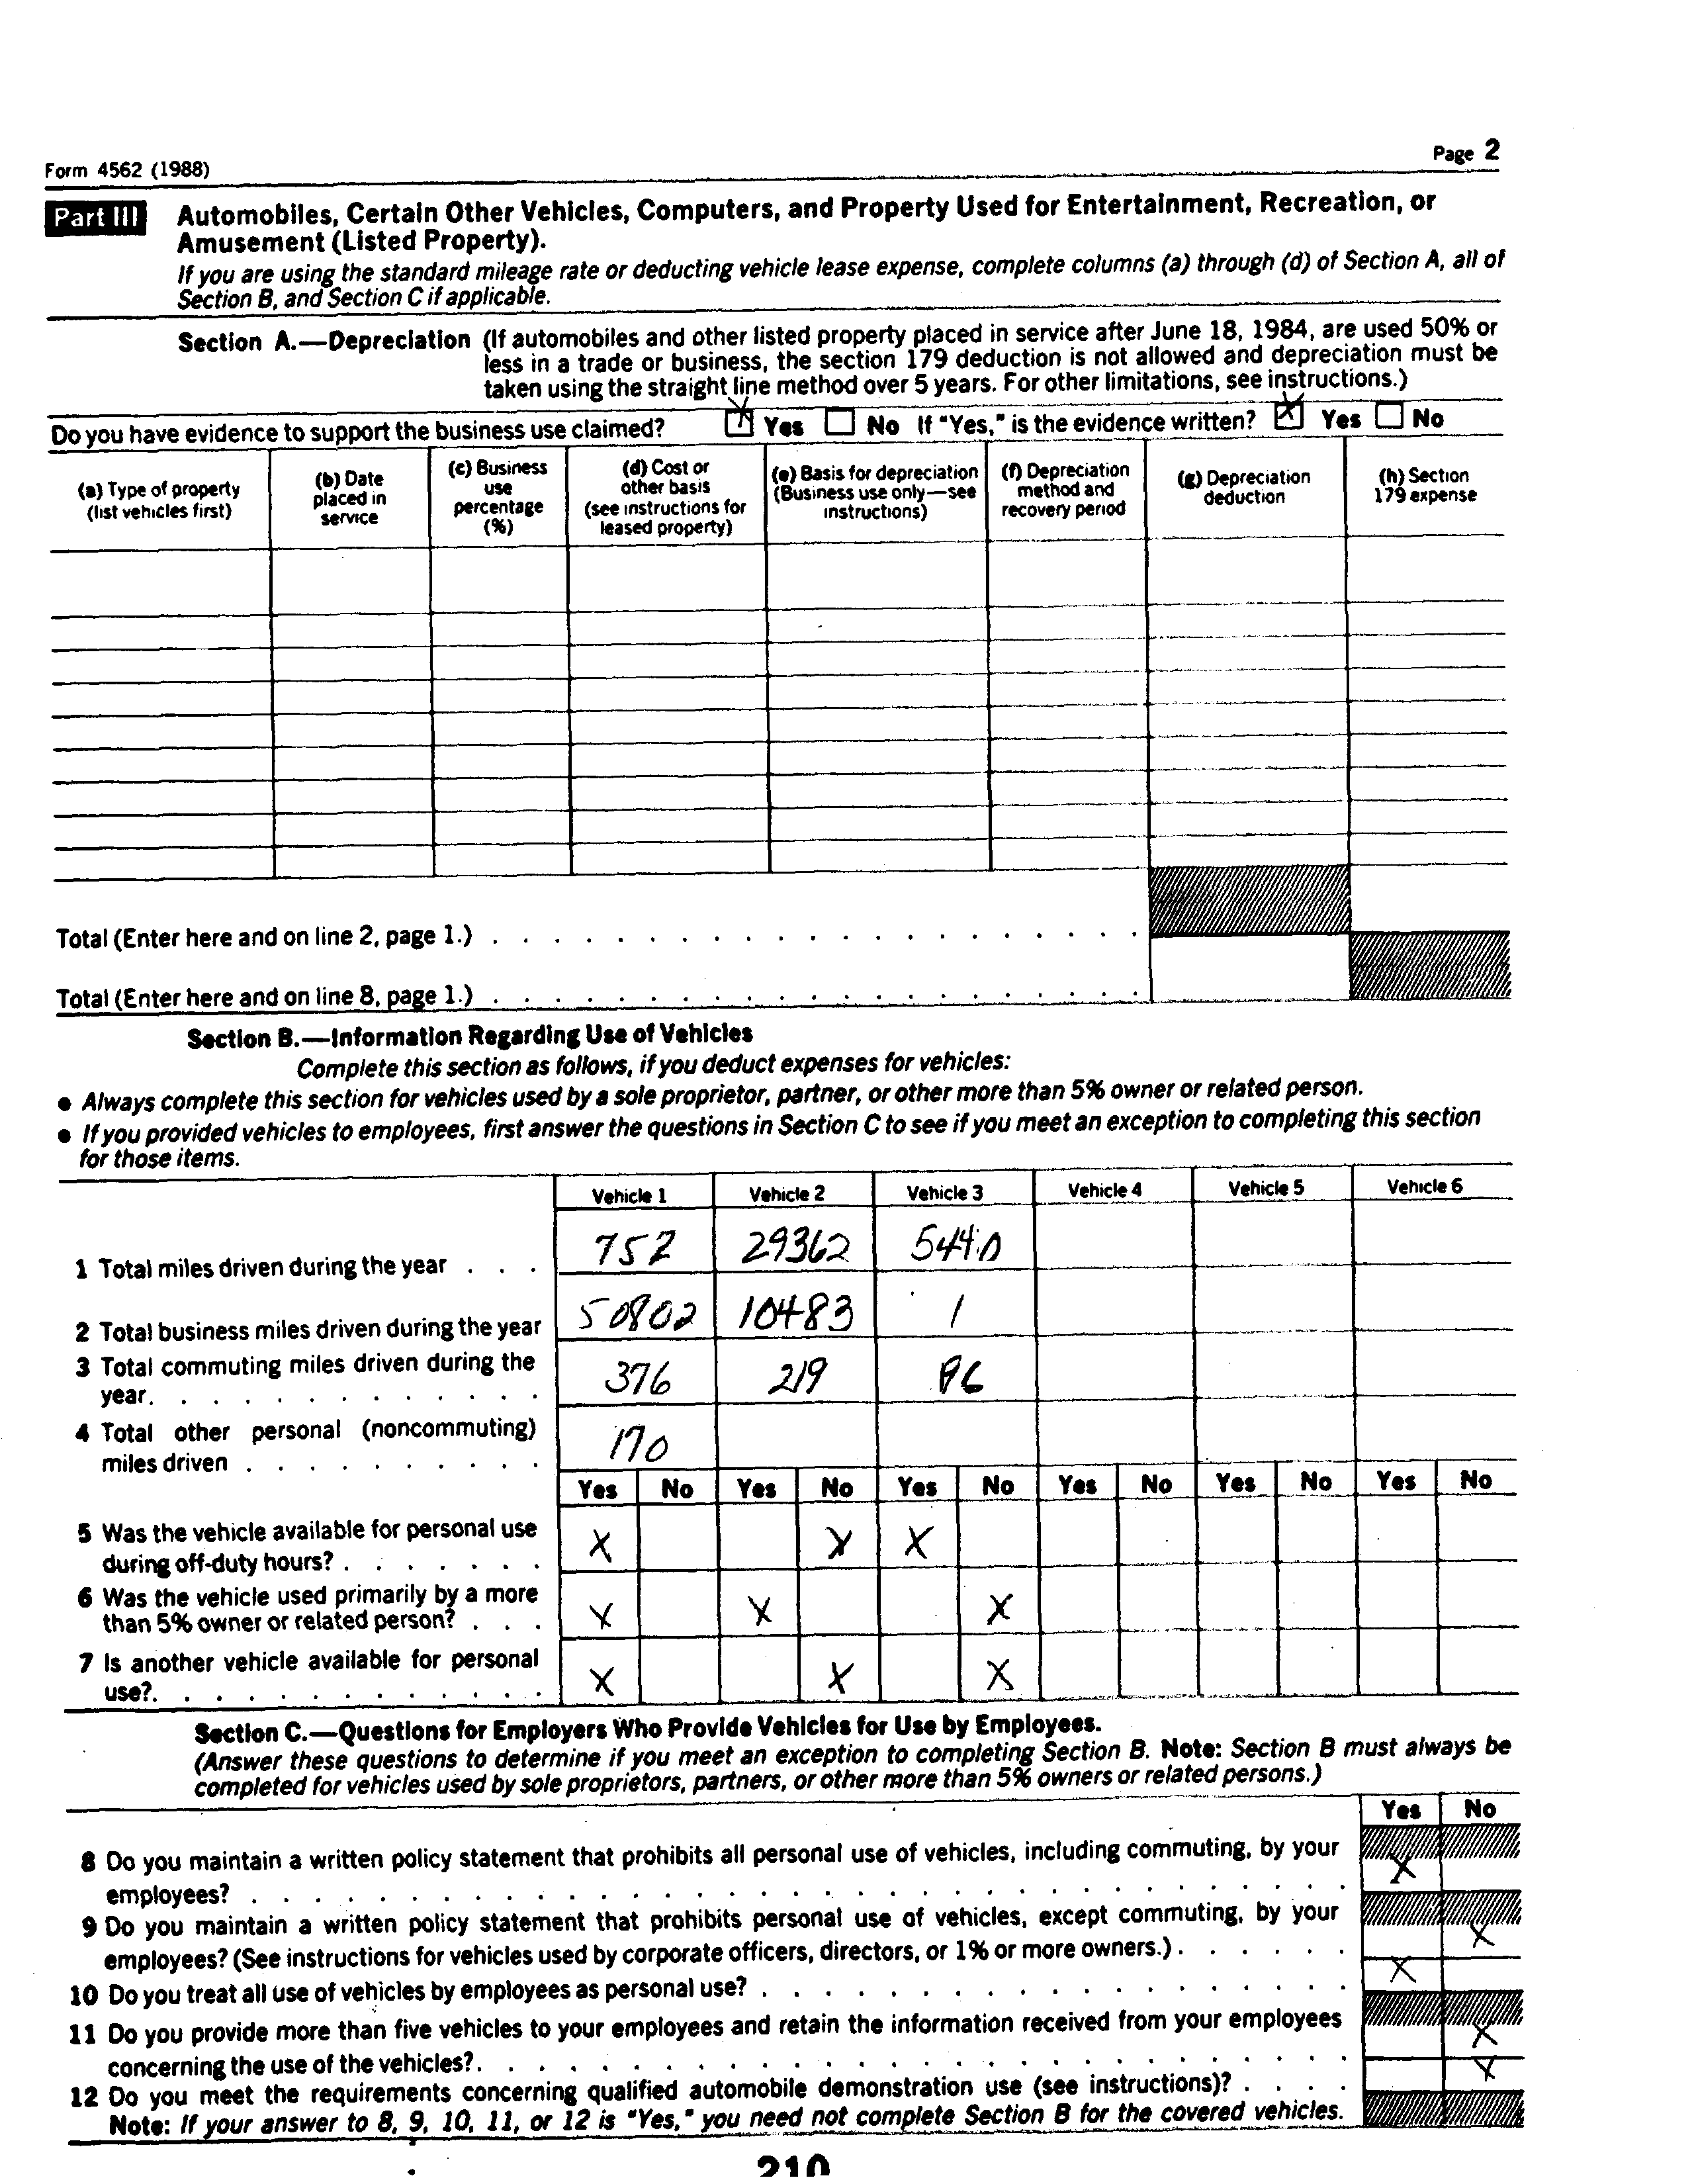 Form 4562 (1988)
Page 2
Part III Automobiles, Certain Other Vehicles, Computers, and Property Used for Entertainment, Recreation, or
Amusement (Listed Property).
If you are using the standard mileage rate or deducting vehicle lease expense, complete columns (a) through (d) of Section A, all of
Section B, and Section C if applicable.
Section A.—Depreciation (If automobiles and other listed property placed in service after June 18, 1984, are used 50% or
less in a trade or business, the section 179 deduction is not allowed and depreciation must be
taken using the straight line method over 5 years. For other limitations, see instructions.)
Do you have evidence to support the business use claimed? X Yes No If "Yes," is the evidence written? X Yes No
(a) Type of property
(list vehicles first)
(b) Date
placed in
service
(c) Business
use
percentage
(%)
(d) Cost or
other basis
(see instructions for
leased property)
(e) Basis for depreciation
(Business use only—see
instructions)
(f) Depreciation
method and
recovery period
(g) Depreciation
deduction
(h) Section
179 expense
Total (Enter here and on line 2, page 1.)
Total (Enter here and on line 8, page 1.)
Section B.—Information Regarding Use of Vehicles
Complete this section as follows, if you deduct expenses for vehicles:
● Always complete this section for vehicles used by a sole proprietor, partner, or other more than 5% owner or related person.
● If you provided vehicles to employees, first answer the questions in Section C to see if you meet an exception to completing this section
for those items.
Vehicle 1 Vehicle 2 Vehicle 3 Vehicle 4 Vehicle 5 Vehicle 6
1 Total miles driven during the year . . . 752 29362
2 Total business miles driven during the year 50802 10483 1
3 Total commuting miles driven during the
year. 376 219
4 Total other personal (noncommuting)
miles driven 170
Yes No Yes No Yes No Yes No Yes No Yes No
5 Was the vehicle available for personal use
during off-duty hours? X X X
6 Was the vehicle used primarily by a more
than 5% owner or related person? X X X
7 Is another vehicle available for personal
use?. X X X
Section C.—Questions for Employers Who Provide Vehicles for Use by Employees.
(Answer these questions to determine if you meet an exception to completing Section B. Note: Section B must always be
completed for vehicles used by sole proprietors, partners, or other more than 5% owners or related persons.)
Yes No
8 Do you maintain a written policy statement that prohibits all personal use of vehicles, including commuting, by your
employees? X
9 Do you maintain a written policy statement that prohibits personal use of vehicles, except commuting, by your
employees? (See instructions for vehicles used by corporate officers, directors, or 1% or more owners.) X
10 Do you treat all use of vehicles by employees as personal use? X
11 Do you provide more than five vehicles to your employees and retain the information received from your employees
concerning the use of the vehicles? X
12 Do you meet the requirements concerning qualified automobile demonstration use (see instructions)? X
Note: If your answer to 8, 9, 10, 11, or 12 is "Yes," you need not complete Section B for the covered vehicles.
210